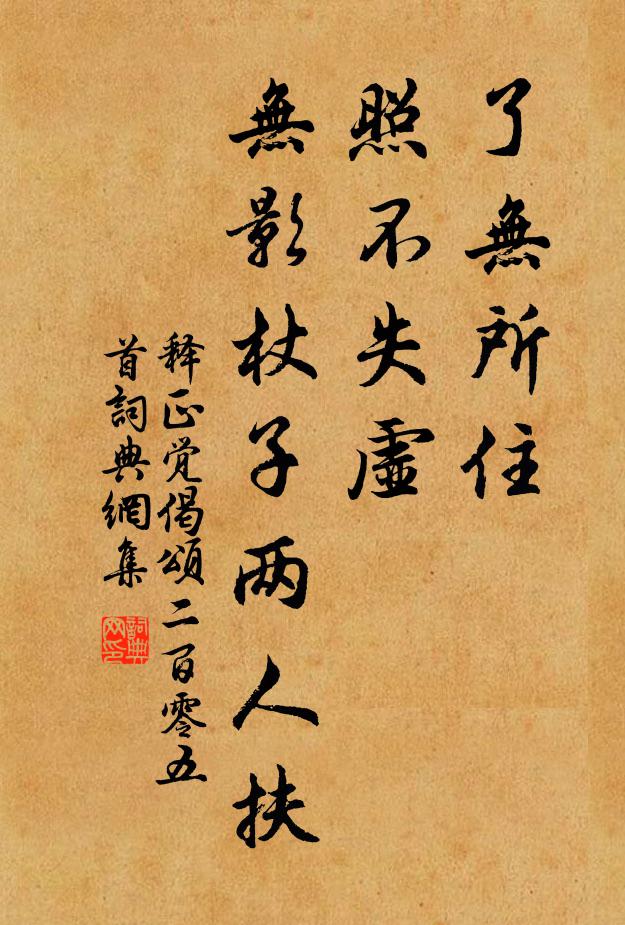 了無所住
照不失虛
無影杖子两人扶
释正觉偈頌二百零五
首詞典網集
詞典
网印